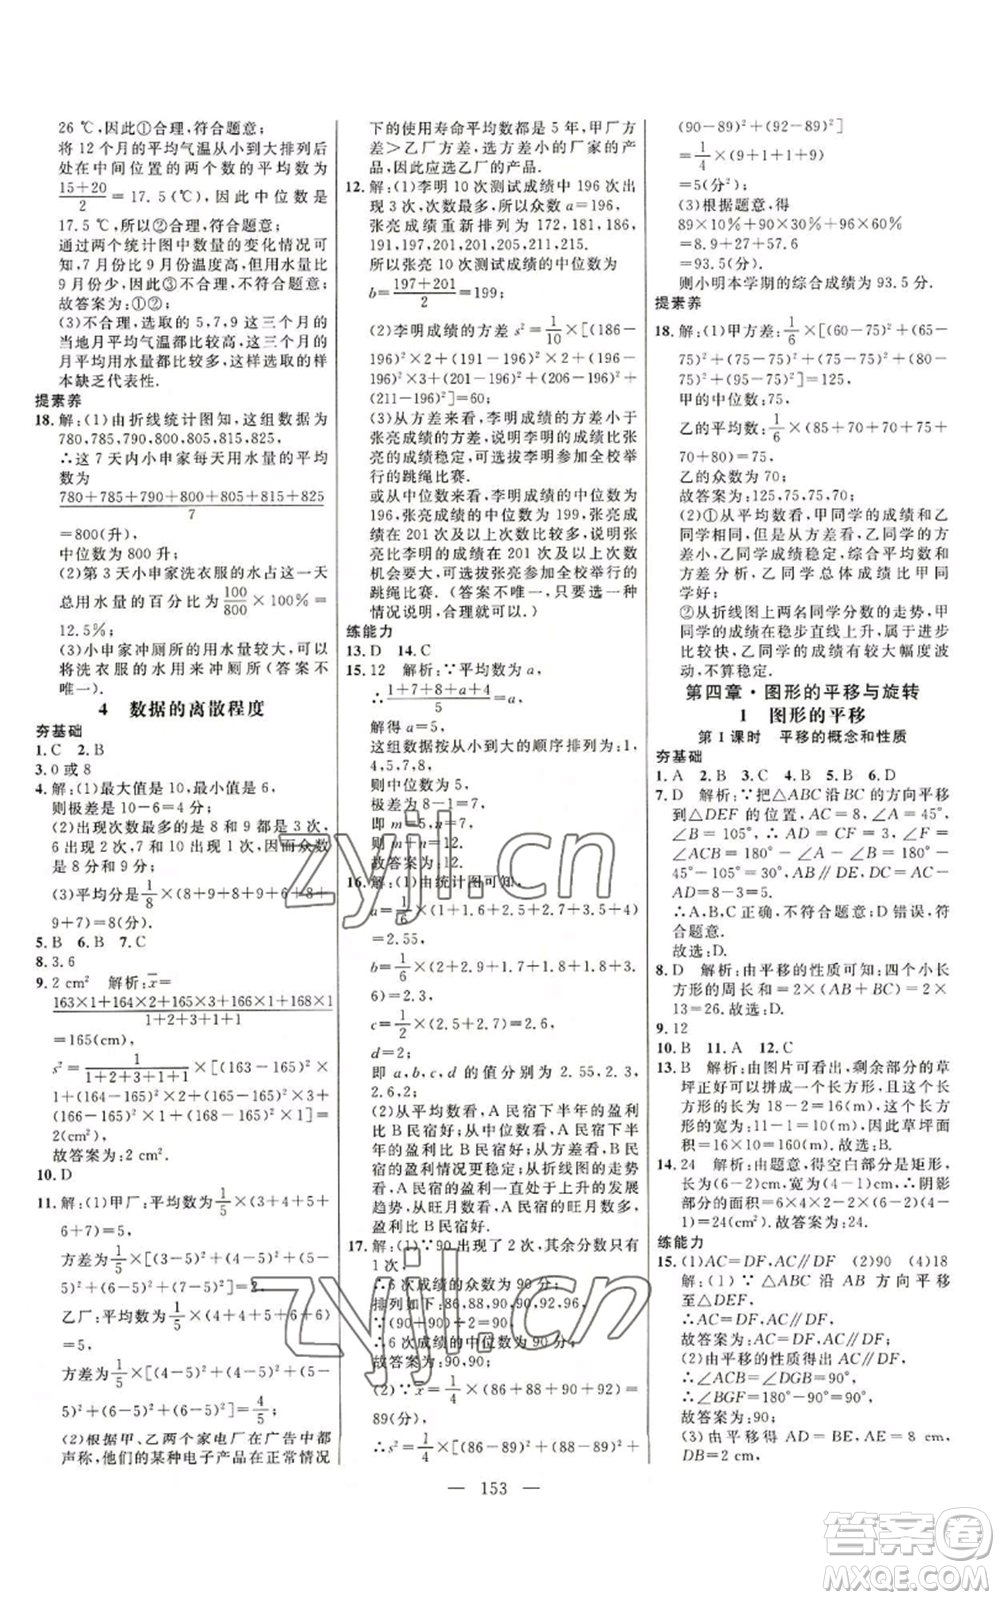 26 ℃,因此①合理,符合题意;
将 12 个月的平均气温从小到大排列后
处在中间位置的两个数的平均数为
(15+20)/2=17.5(℃),因此中位数是
17.5 ℃,所以②合理,符合题意;
通过两个统计图中数量的变化情况可
知,7 月份比 9 月份温度高,但用水量比
9 月份少,因此③不合理,不符合题意.
故答案为:①②;
(3)不合理,选取的 5,7,9 这三个月的
当地月平均气温都比较高,这三个月的
月平均用水量都比较大,所以选取的样
本缺乏代表性.
提素养
18.解:(1)由折线统计图知,这组数据为
780,785,790,800,805,815,825,
∴这 7 天内小申家每天用水量的平均
数为
(780+785+790+800+805+815+825)/7
=800(升),
中位数为 800 升;
(2)第 3 天小申家洗衣服的水占这一天
总用水量的百分比为100/800×100%=
12.5%;
(3)小申家冲厕所的用水量较大,可以
将洗衣服的水用来冲厕所(答案不
唯一).
4 数据的离散程度
夯基础
1.C 2.B
3.0 或 8
4.解:(1)最大值是 10,最小值是 6,
则极差是 10-6=4(分);
(2)出现次数最多的是 8 和 9 都是 3 次,
6 出现 2 次,7 和 10 出现 1 次,因而众数
是 8 分和 9 分;
(3)平均分是1/8×(8+9+8+9+6+8+
9+7)=8(分).
5.B 6.B 7.C
8.3.6
9.2 cm² 解析:x̄=
(163×1+164×2+165×3+166×1+168×1)/(1+2+3+1+1)
=165(cm),
s²=1/(1+2+3+1+1)×[(163-165)²×
1+(164-165)²×2+(165-165)²×3+
(166-165)²×1+(168-165)²×1]=
2(cm²).
故答案为:2 cm².
10.D
11.解:(1)甲厂:平均数为1/5×(3+4+5+
6+7)=5,
方差为1/5×[(3-5)²+(4-5)²+(5-
5)²+(6-5)²+(7-5)²]=2,
乙厂:平均数为1/5×(4+5+4+6+6)=
5,
方差为1/5×[(4-5)²+(5-5)²+(4-
5)²+(6-5)²+(6-5)²]=4/5;
(2)根据甲、乙两个家电厂在广告中都
声称,他们的某种电子产品在正常情况
下的使用寿命平均数都是 5 年,甲厂方
差>乙厂方差,选方差小的厂家的产
品,因此应选乙厂的产品.
12.解:(1)李明 10 次测试成绩中 196 次出
现 3 次,次数最多,所以众数 a=196,
张亮成绩重新排列为 172,181,186,
191,191,197,201,205,211,215.
所以张亮 10 次测试成绩的中位数为
b=(197+201)/2=199;
(2)李明成绩的方差 s²=1/10×[(186-
196)²×2+(191-196)²×2+(196-
196)²×3+(201-196)²×2+
(211-196)²]=60;
(3)从方差来看,李明成绩的方差小于
张亮成绩的方差,说明李明的成绩比张
亮的成绩稳定,可选李明参加全校举
行的跳绳比赛.
或从中位数来看,李明成绩的中位数为
196,张亮成绩的中位数为 199,说明张
亮成绩在 201 次及以上次数比较多,
张亮比李明的成绩在 201 次及以上次数
机会要大,可选张亮参加全校举行的
跳绳比赛.(答案不唯一,选择一种
情况说明,合理就可以.)
练能力
13.D 14.C
15.12 解析:∵平均数为 a,
∴(1+7+8+a+4)/5=a,
解得:a=5,
这组数据按从小到大的顺序排列为:1,
4,5,7,8,
则中位数为 5,
极差为 8-1=7,
即 m=5,n=7,
则 m+n=12.
故答案为:12.
16.解:(1)由统计图可知,
a=1/6×(1+1.6+2.5+2.7+3.5+4)
=2.55,
b=1/6×(2+2.9+1.7+1.8+1.8+3.
6)=2.3,
c=1/2×(2.5+2.7)=2.6,
d=2;
即 a,b,c,d 的值分别为 2.55,2.3,
2.6,2;
(2)从平均数看,A 民宿下半年的盈利
比 B 民宿好;从中位数看,A 民宿下半
年的盈利比 B 民宿好;从方差看,B 民宿
盈利情况更稳定;从折线图的走势
看,A 民宿的盈利一直处于上升的发展
趋势,从旺月多少看,A 民宿的旺月数多,
盈利比 B 民宿好.
17.解:(1)∵90 出现了 2 次,其余分数只有
1 次,
∴6 次成绩的众数为 90 分;
排列如下:86,88,90,90,92,96,
∵(90+90)÷2=90,
∴6 次成绩的中位数为 90 分,
故答案为:90,90;
(2)∵x̄=1/4×(86+88+90+92)=
89(分),
∴s²=1/4×[(86-89)²+(88-89)²+
(90-89)²+(92-89)²]
=1/4×(9+1+1+9)
=5(分²);
(3)根据题意,得
89×10%+90×30%+96×60%
=8.9+27+57.6
=93.5(分).
则小明本学期的综合成绩为 93.5 分.
提素养
18.解:(1)甲方差:1/6×[(60-75)²+(65-
75)²+(75-75)²+(75-75)²+(80-
75)²+(95-75)²]=125,
甲的中位数:75,
乙的平均数:1/6×(85+70+70+75+
70+80)=75,
乙的众数为 70;
故答案为:125,75,75,70;
(2)①从平均数看,甲同学的成绩和乙
同学的成绩一样;从方差看,乙同学的
方差小,乙同学成绩稳定,综合平均数和
方差分析,乙同学总体成绩比甲同
学好;
②从折线图上两名同学分数的走势,甲
同学的成绩在稳步直线上升,属于进步
比较快,乙同学的成绩有较大幅度
波动,不算稳定.
第四章·图形的平移与旋转
1 图形的平移
第 1 课时 平移的概念和性质
夯基础
1.A 2.B 3.C 4.D 5.B 6.D
7.D 解析:∵把△ABC 沿 BC 的方向平移
到△DEF 的位置,BC=8,∠A=45°,
∠B=105°,∴AD=CF=3,
∠F=∠ACB=180°-∠A-∠B=
180°-45°-105°=30°,
AD=8-3=5.
∴A,B,C 正确,不符合题意;D 错误,符
合题意.
故选:D.
8.D 解析:由平移的性质可知:四个小长
方形的周长和=2×(AB+BC)=2×
13=26.故选:D.
9.12
10.B 11.A 12.C
13.B 解析:由图片可看出,剩余部分的草
坪正好可以拼成一个长方形,且这个长
方形的长为 18-2=16(m),这个长方
形的宽为:11-1=10(m),因此草坪面
积=16×10=160(m).故选:B.
14.24 解析:由题意,得空白部分是矩形,
长为(6-2)cm,宽为(4-1)cm,∴阴影
部分的面积=6×4×2-2×(6-2)(4-
1)=24(cm²).故答案为:24.
练能力
15.(1)AC=DF,AC∥DF (2)90 (4)18
解:(1)∵△ABC 沿 AB 方向平移
至△DEF,
∴AC=DF,AC∥DF.
故答案为:AC=DF,AC∥DF;
(2)由平移的性质可得 AC∥DF,
∴∠ACB=∠DGB=90°,
∴∠BGF=180°-90°=90°,
故答案为:90;
(3)由平移得 AD=BE,AE=8 cm,
DB=2 cm,
— 153 —
zyjl.cn
zyjl.cn
答案圈
MXQE.COM